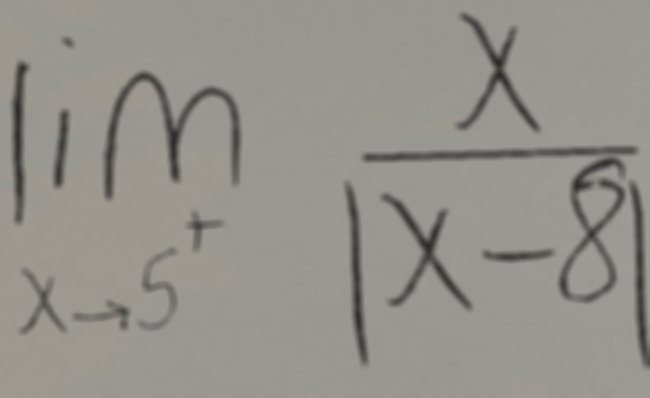 lim x→5⁺ x/|x-8|